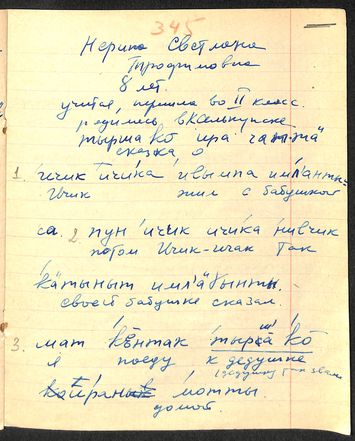 345
Нерина Светлана
Трофимовна
8 лет.
учится, перешла во II класс.
родилась, в Келькупске
тырша ко ира чаптӓ
сказка о
1. ичик ичика ивымпа имлanты-
Ичик жил с бабушкой
са. 2. пун ичик ичика нивчик
потом Ичик-ичак так
кӓтыныт имлӓгынты.
своей бабушке сказал.
3. мат қӧнтак тырса ко
я поеду к дедушке
(дедушку так звали
мӧтты.
домой.